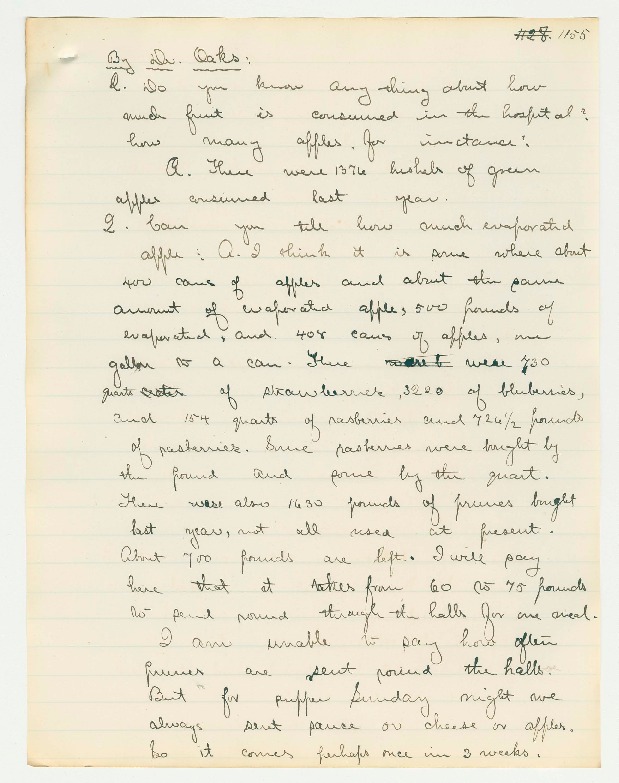 1155
By Dr. Oaks:
Q. Do you know any thing about how
much fruit is consumed in the hospital?
how many apples, for instance?
A. There were 1376 bushels of green
apples consumed last year.
Q. Can you tell how much evaporated
apple? A. I think it is some where about
400 cans of apples and about the same
amount of evaporated apple; 500 pounds of
evaporated, and 408 cans of apples, one
gallon to a can. There were 730
quarts of strawberries, 3220 of bluberries,
and 154 quarts of rasberries and 726 1/2 pounds
of rasberries. Some rasberries were bought by
the pound and some by the quart.
There were also 1630 pounds of prunes bought
last year, not all used at present.
About 700 pounds are left. I will say
here that it takes from 60 to 75 pounds
to send round through the halls for one meal.
I am unable to say how often
prunes are sent round the halls.
But for supper Sunday night we
always sent sauce or cheese or apples.
So it comes perhaps once in 3 weeks.